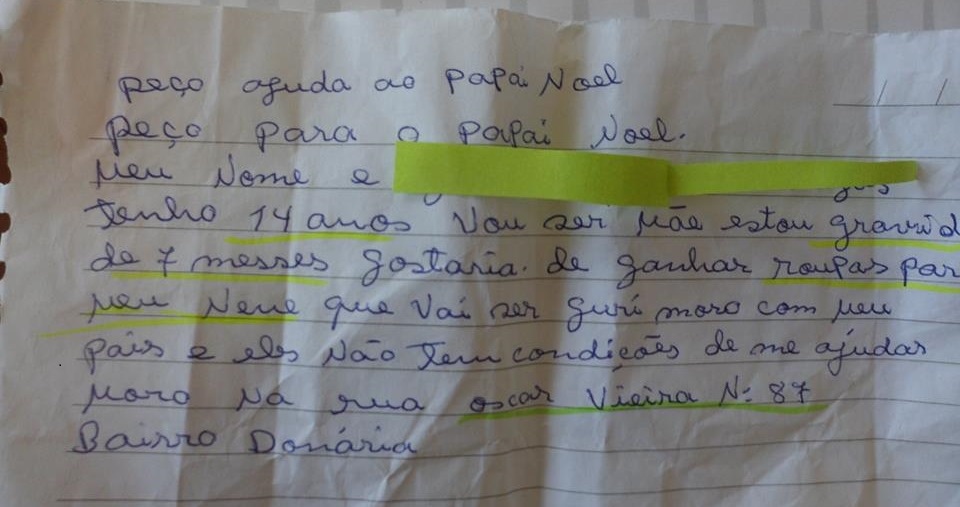 peço ajuda ao Papai Noel
peço para o Papai Noel.
Meu Nome e
tenho 14 anos Vou ser Mãe estou gravid
de 7 messes gostaria. de ganhar roupas par
meu Nene que Vai ser guri moro com meu
pais e eles Não tem condições de me ajudar
Moro Na rua oscar Vieira N: 87
Bairro Donária